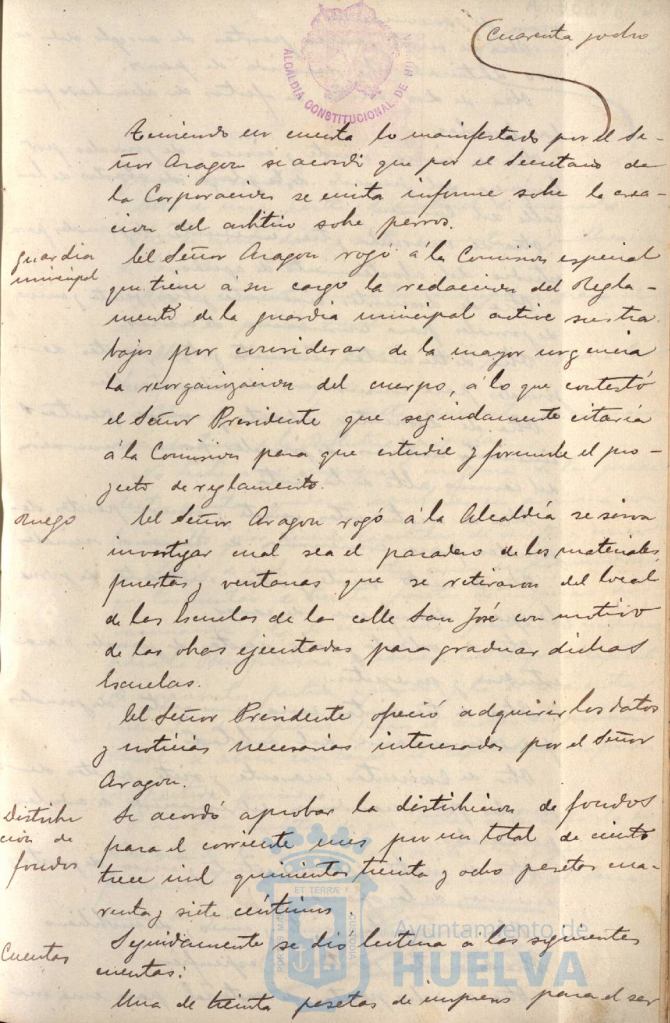 Cuarenta y ocho
ALCALDÍA CONSTITUCIONAL DE
Teniendo en cuenta lo manifestado por el Se-
ñor Aragon se acordó que por el Secretario de
la Corporacion se emita informe sobre la crea-
cion del arbitrio sobre perros.
Guardia
municipal
El Señor Aragon rogó á la Comision especial
que tiene á su cargo la redaccion del Regla-
mento de la guardia municipal active sus tra
bajos por considerar de la mayor urgencia
la reorganizacion del cuerpo, á lo que contestó
el Señor Presidente que seguidamente citaria
á la Comision para que estudie y formule el pro-
yecto de reglamento.
Ruego
El Señor Aragon rogó á la Alcaldía se sirva
investigar cual sea el paradero de los materiales,
puertas y ventanas que se retiraron del local
de las Escuelas de la calle San José con motivo
de las obras ejecutadas para graduar dichas
Escuelas.
El Señor Presidente ofreció adquirir los datos
y noticias necesarias interesadas por el Señor
Aragon.
Distribu
cion de
fondos
Se acordó aprobar la distribucion de fondos
para el corriente mes por un total de ciento
trece mil quinientas treinta y ocho pesetas cua-
renta y siete céntimos
Cuentas
Seguidamente se dio lectura a las siguientes
cuentas:
Una de treinta pesetas de impresos para el ser
Ayuntamiento de
HUELVA